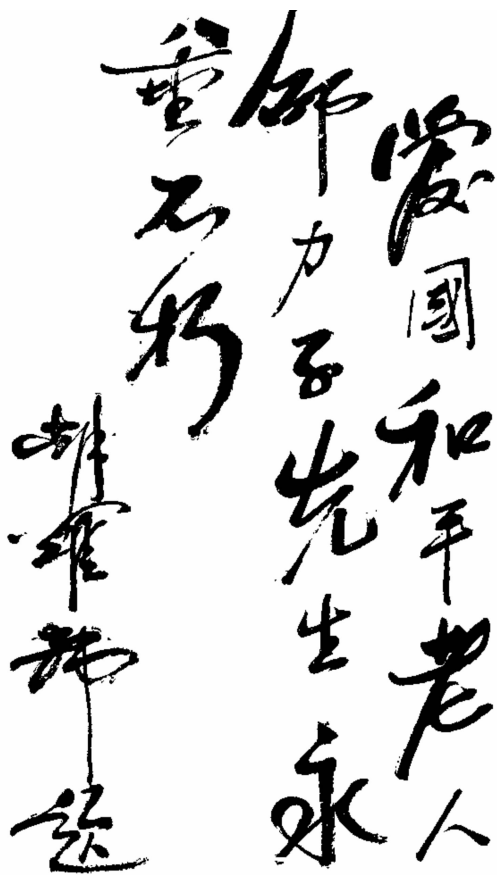 愛國和平老人
邵力子先生永
垂不朽
胡耀邦題